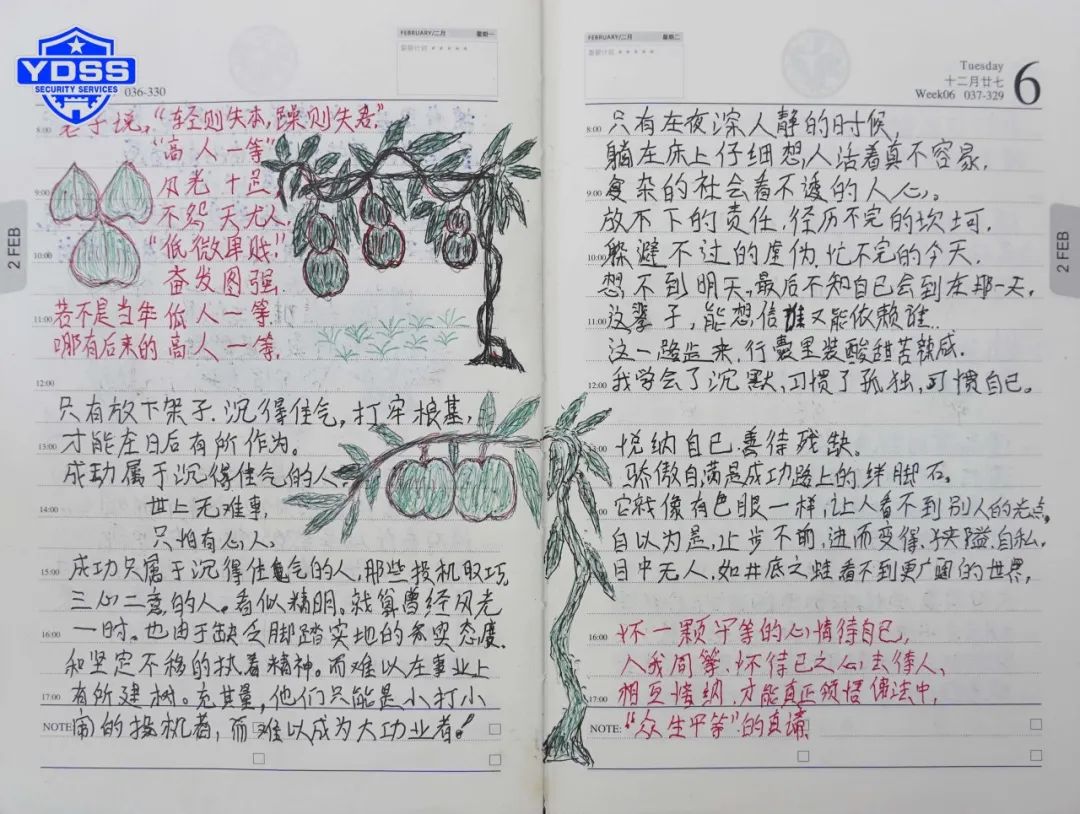 YDSS
SECURITY SERVICES
FEBRUARY/二月 星期一
036-330
老子说，“轻则失本，躁则失君”
“高人一等”
风光十足，
不怨天尤人，
“低微卑贱”
奋发图强．
若不是当年低人一等．
哪有后来的高人一等．
只有放下架子．沉得住气，打牢根基，
才能在日后有所作为。
成功属于沉得住气的人
世上无难事，
只怕有心人，
成功只属于沉得住气的人，那些投机取巧
三心二意的人。看似精明。就算曾经风光
一时。也由于缺乏脚踏实地的务实态度
和坚定不移的执着精神。而难以在事业上
有所建树。充其量，他们只能是小打小
闹的投机者，而难以成为大功业者！
8:00
9:00
10:00
11:00
12:00
13:00
14:00
15:00
16:00
17:00
NOTE:
2 FEB
FEBRUARY/二月 星期二
Tuesday
十二月廿七
Week06 037-329
6
只有在夜深人静的时候，
躺在床上仔细想，人活着真不容易，
复杂的社会看不透的人心。
放不下的责任，径历不完的坎坷．
躲避不过的虚伪．忙不完的今天．
想不到明天，最后不知自己会到在那一天，
这辈子，能想信谁又能依赖谁．
这一路走来，行囊里装酸甜苦辣咸．
我学会了沉默，习惯了孤独，习惯自己。
悦纳自己．善待残缺。
骄傲自满是成功路上的绊脚石。
它就像有色眼一样，让人看不到别人的光点，
自以为是，止步不前，进而变得．狭隘．自私，
目中无人，如井底之蛙看不到更广阔的世界，
怀一颗平等的心情待自己，
人我同等．怀待己之心去待人，
相互接纳．才能真正领悟佛法中，
“众生平等”的真谛
8:00
9:00
10:00
11:00
12:00
16:00
17:00
NOTE:
2 FEB